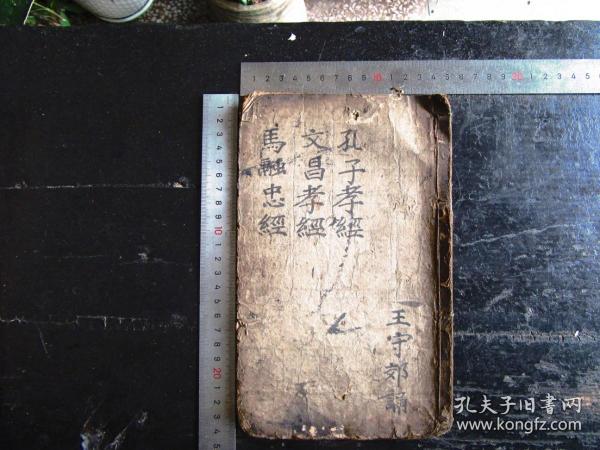 孔子孝經
文昌孝經
馬融忠經
王守郊誦
孔夫子旧書网
www.kongfz.com
1 2 3 4 5 6 7 8 9 10 1 2 3 4 5 6 7 8 9 20 1 2 3 4 5
1 2 3 4 5 6 7 8 9 10 1 2 3 4 5 6 7 8 9 20 1 2 3 4 5